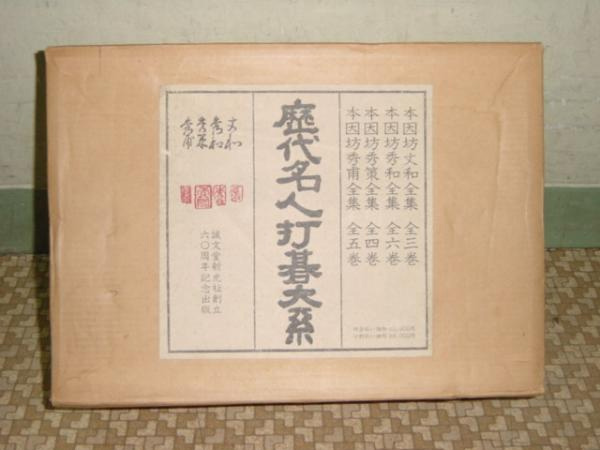 本因坊丈和全集 全三巻
本因坊秀和全集 全六巻
本因坊秀策全集 全四巻
本因坊秀甫全集 全五巻
歴代名人打碁大系
丈和
秀和
秀策
秀甫
誠文堂新光社創立
六〇周年記念出版